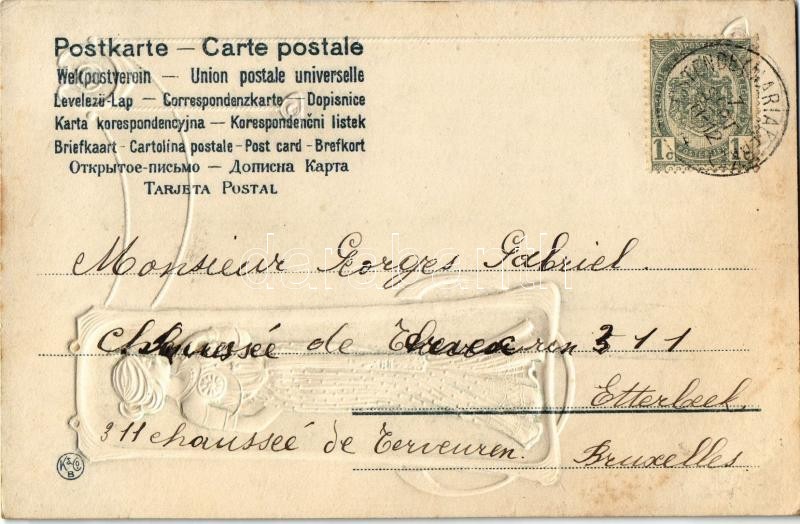 Postkarte — Carte postale
Weltpostverein — Union postale universelle
Levelező-Lap — Correspondenzkarte — Dopisnice
Karta korespondencyjna — Korespondenční listek
Briefkaart - Cartolina postale - Post card - Brefkort
Открытое-письмо — Дописна Карта
TARJETA POSTAL
1c
1c
Monsieur Georges Gabriel.
Chaussée de Tervueren 311
Etterbeek
311 chaussée de Terveuren.
Bruxelles
K & Co
B